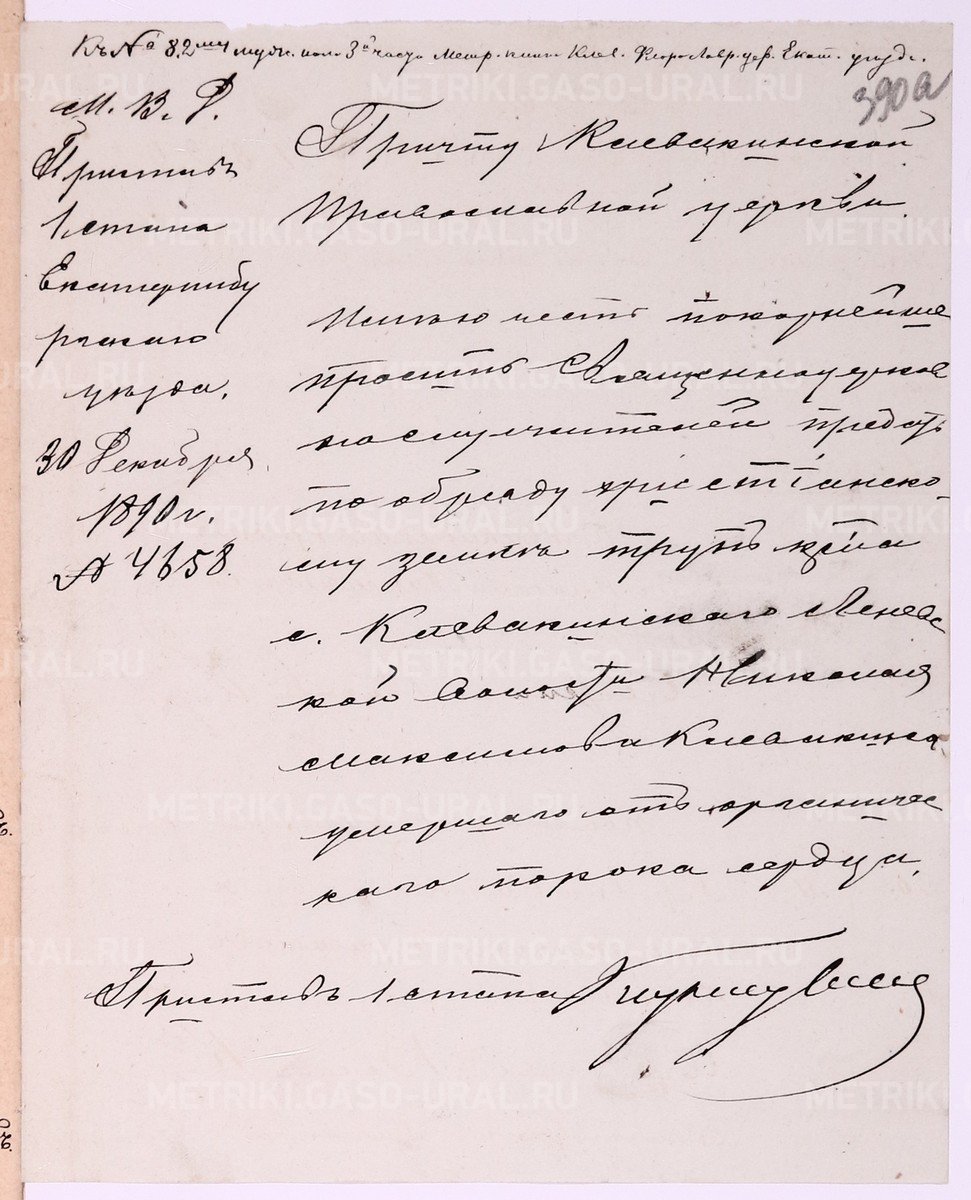 Къ № 82му мужс. пола 3й части Метр. книги Клев. Флоро-Лавр. цер. Екат. уѣзда.
390а
М. В. Д.
Приставъ
1 стана
Екатеринбу
ргскаго
уѣзда.
30 Декабря
1890 г.
№ 4658.
Причту Клевакинской
Православной церкви
Имѣю честь покорнѣйше
просить Священноцерков
нослужителей предать
по обряду христіанско
му землѣ трупъ кр-на
с. Клевакинскаго Леневс
кой волости Николая
Максимова Клевакина,
умершаго отъ органичес
каго порока сердца.
Приставъ 1 стана
METRIKI.GASO-URAL.RU